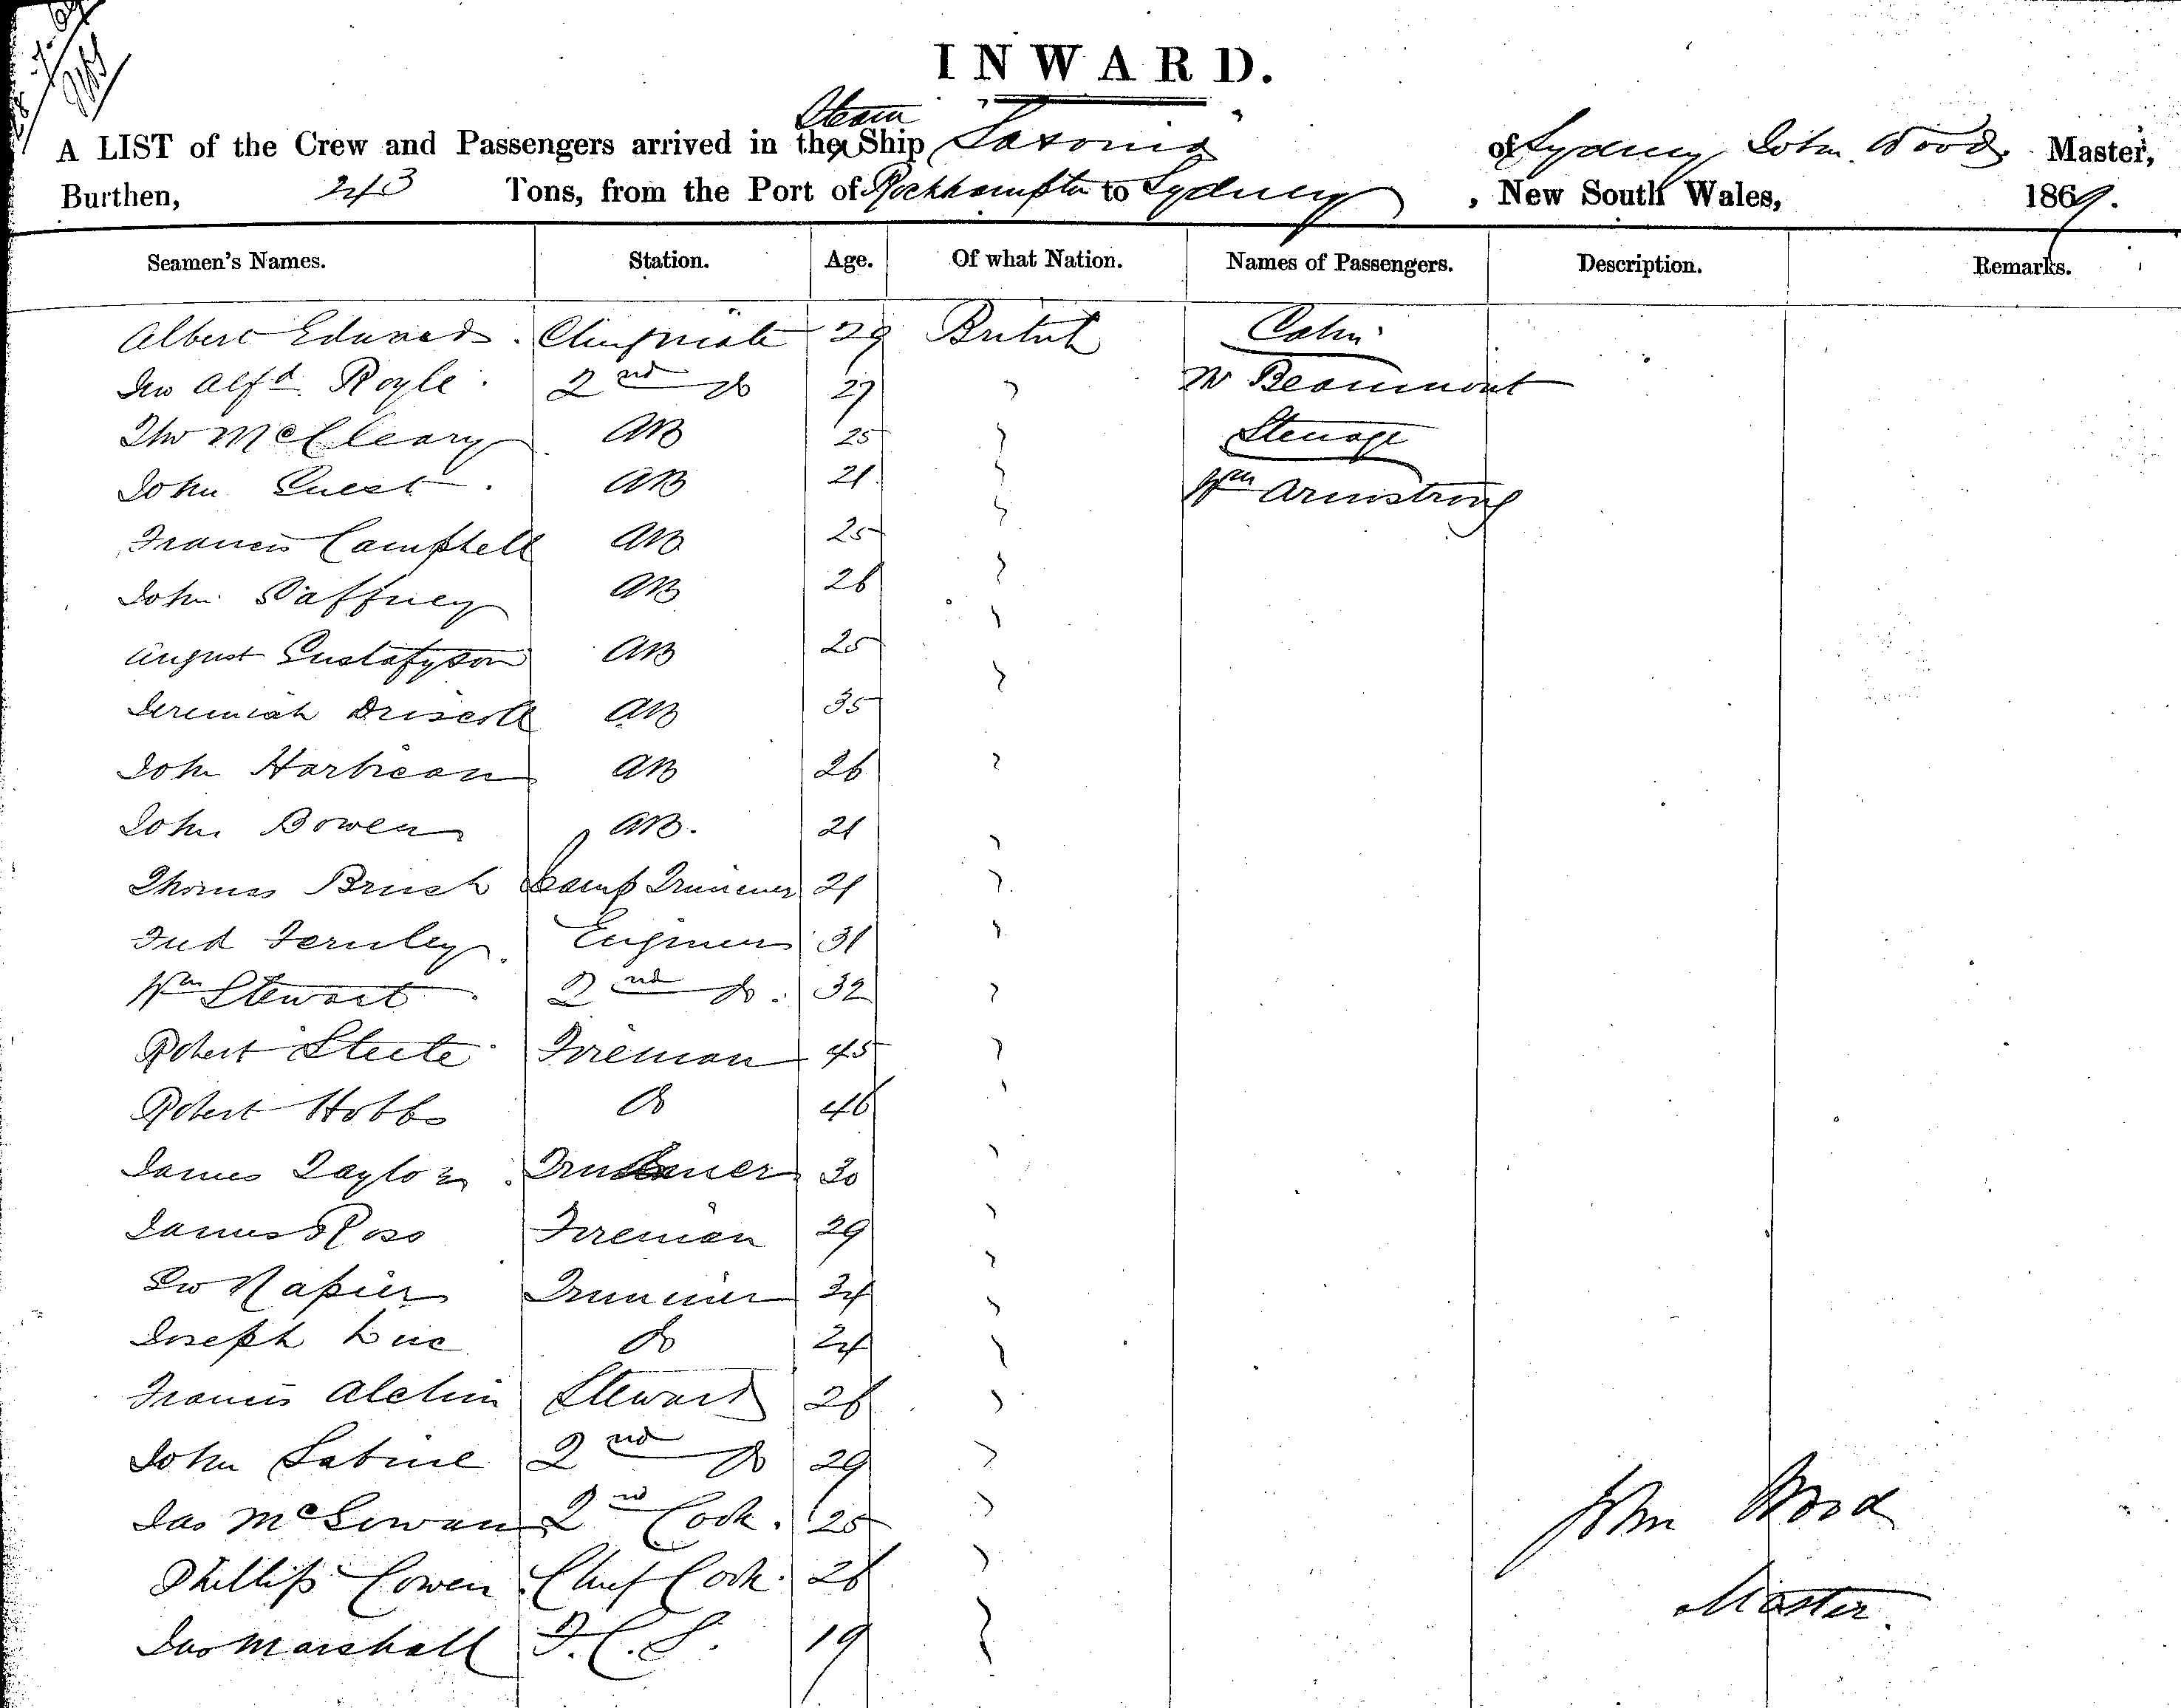 INWARD.
A LIST of the Crew and Passengers arrived in the Steam Ship "Saxonia" of Sydney John Wood Master,
Burthen, 243 Tons, from the Port of Rockhampton to Sydney, New South Wales, 1869.
Seamen's Names. Station. Age. Of what Nation. Names of Passengers. Description. Remarks.
Albert Edward. Chief Mate 29 British Cabin
Alfd. Royle. 2nd do 27 " Mr Beaumont
Thos McCleary AB 25 " Steerage
John Guest. AB 21 " Wm Armstrong
Francis Campbell AB 25 "
John Gaffney AB 26 "
August Gustafyson AB 25 "
Jeremiah Driscoll AB 35 "
John AB 26 "
John Bowen AB. 21 "
Thomas Brush Lamp Trimmer 21 "
Fred Fernley. Engineer 31 "
Wm Stewart 2nd do. 32 "
Robert Steele Fireman 45 "
Robert Hobbs do 46 "
James Taylor. Trimmer 30 "
James Ross Fireman 29 "
Napier Trimmer 24 "
Joseph do 24 "
Francis Alchin Steward 26 "
John Sabine 2nd do 29 "
Jas McGowan 2nd Cook. 25 "
Phillip Cowen Chief Cook. 26 "
Jas Marshall F.C.S. 19 "
John Wood
Master.